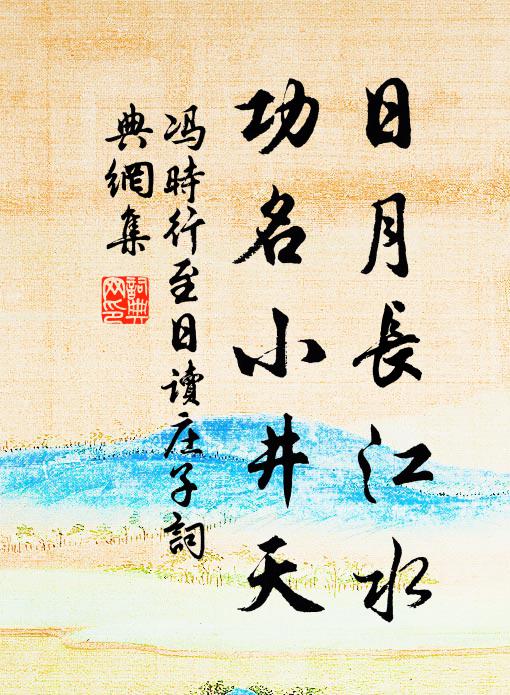 日月長江水
功名小井天
冯時行至日讀庄子詞
典網集
詞典
网印